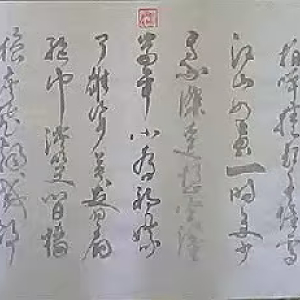 拍岸捲起千堆雪
江山如畫一時多少
豪傑遙想公瑾
當年小喬初嫁
了雄姿英發羽扇
綸巾談笑間檣